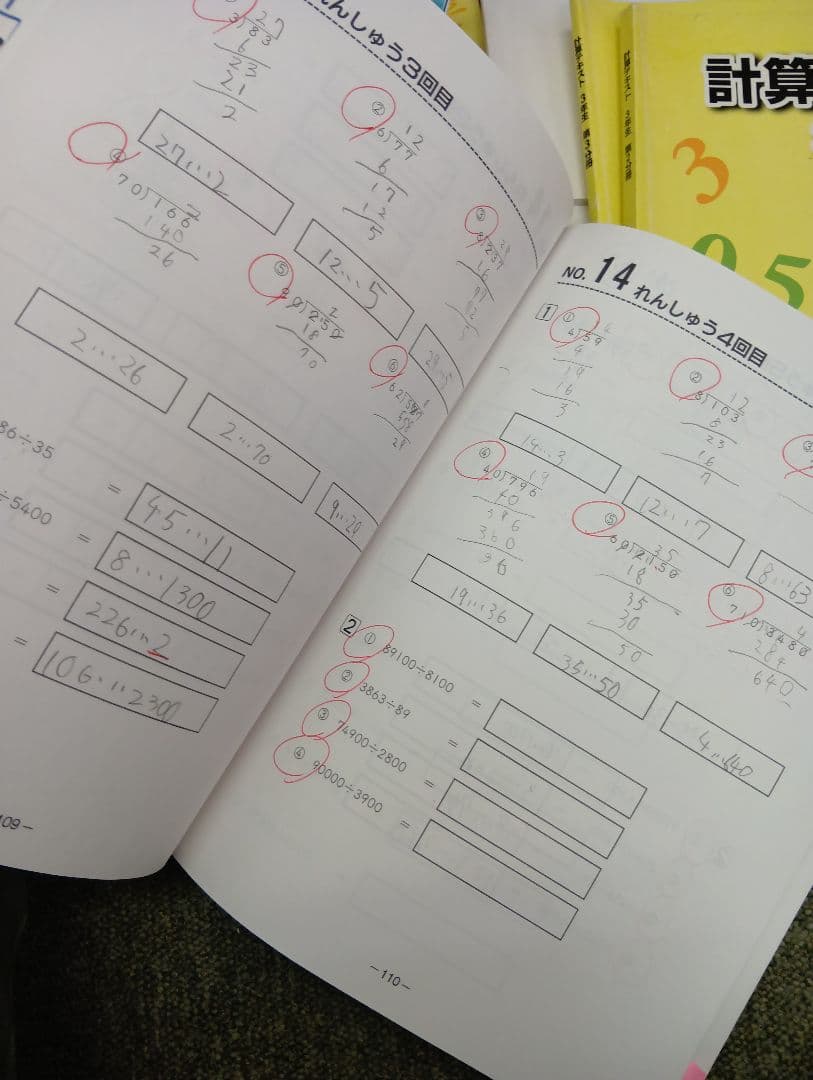 れんしゅう3回目
27
3)83
6
23
21
2
27...2
②
12
6)77
6
17
12
5
12...5
③
8)237
16
④
2
70)166
140
26
2...26
⑤
2
18
70
2...70
⑥
9...20
86÷35
=
45...11
÷5400
=
8...1300
=
226...2
=
106...2300
109－
計算テキスト 3年生 第3分冊
計算テキスト 3年生 第3分冊
計算
3
5
NO. 14 れんしゅう4回目
1
①
14
4)59
4
19
16
3
14...3
②
12
8)103
8
23
16
7
12...7
③
8...63
④
19
40)796
40
396
360
36
19...36
⑤
35
60)2150
18
35
30
50
35...50
⑥
4
710)3480
284
640
4...640
2
① 89100÷8100 =
② 3863÷89 =
③ 74900÷2800 =
④ 90000÷3900 =
－110－